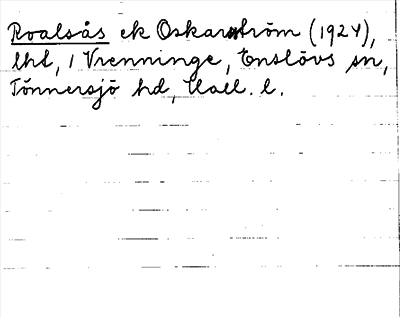 Roalsås ek Oskarström (1924),
lht, i Vrenninge, Enslövs sn,
Tönnersjö hd, Hall. l.